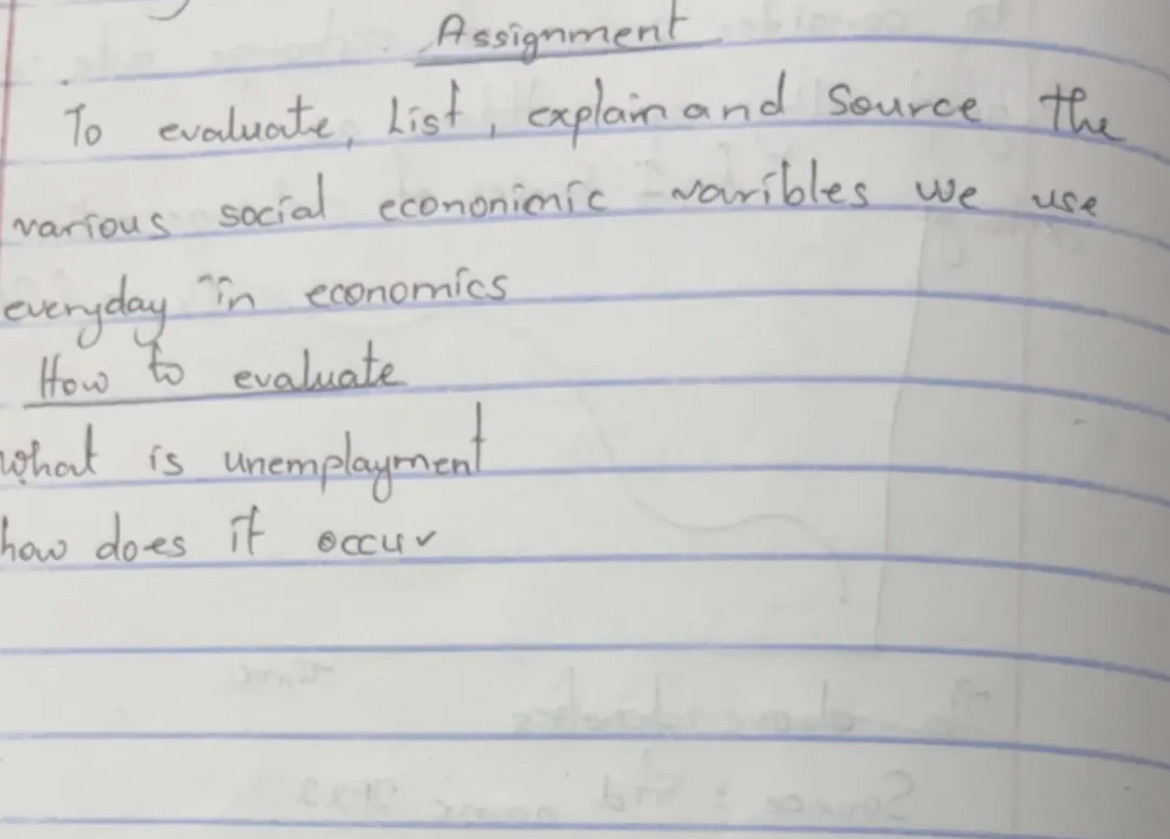 Assignment
To evaluate, List, explain and Source the
various social econonimic varibles we use
everyday in economics
How to evaluate
what is unemplayment
how does it occur